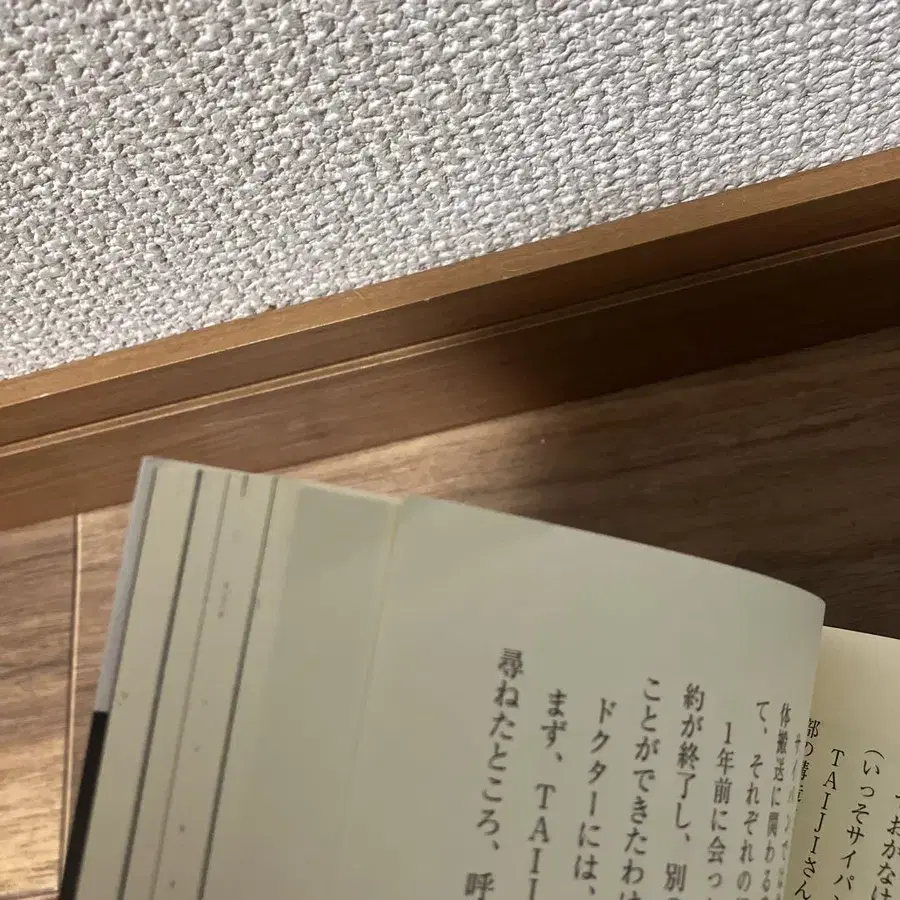 おかなけ
(いっそサイパ
TAIJIさん
部の
体搬送に関わる
て、それぞれの
1年前に会っ
約が終了し、別の
ことができたわけ
ドクターには、
まず、TAI
尋ねたところ、呼